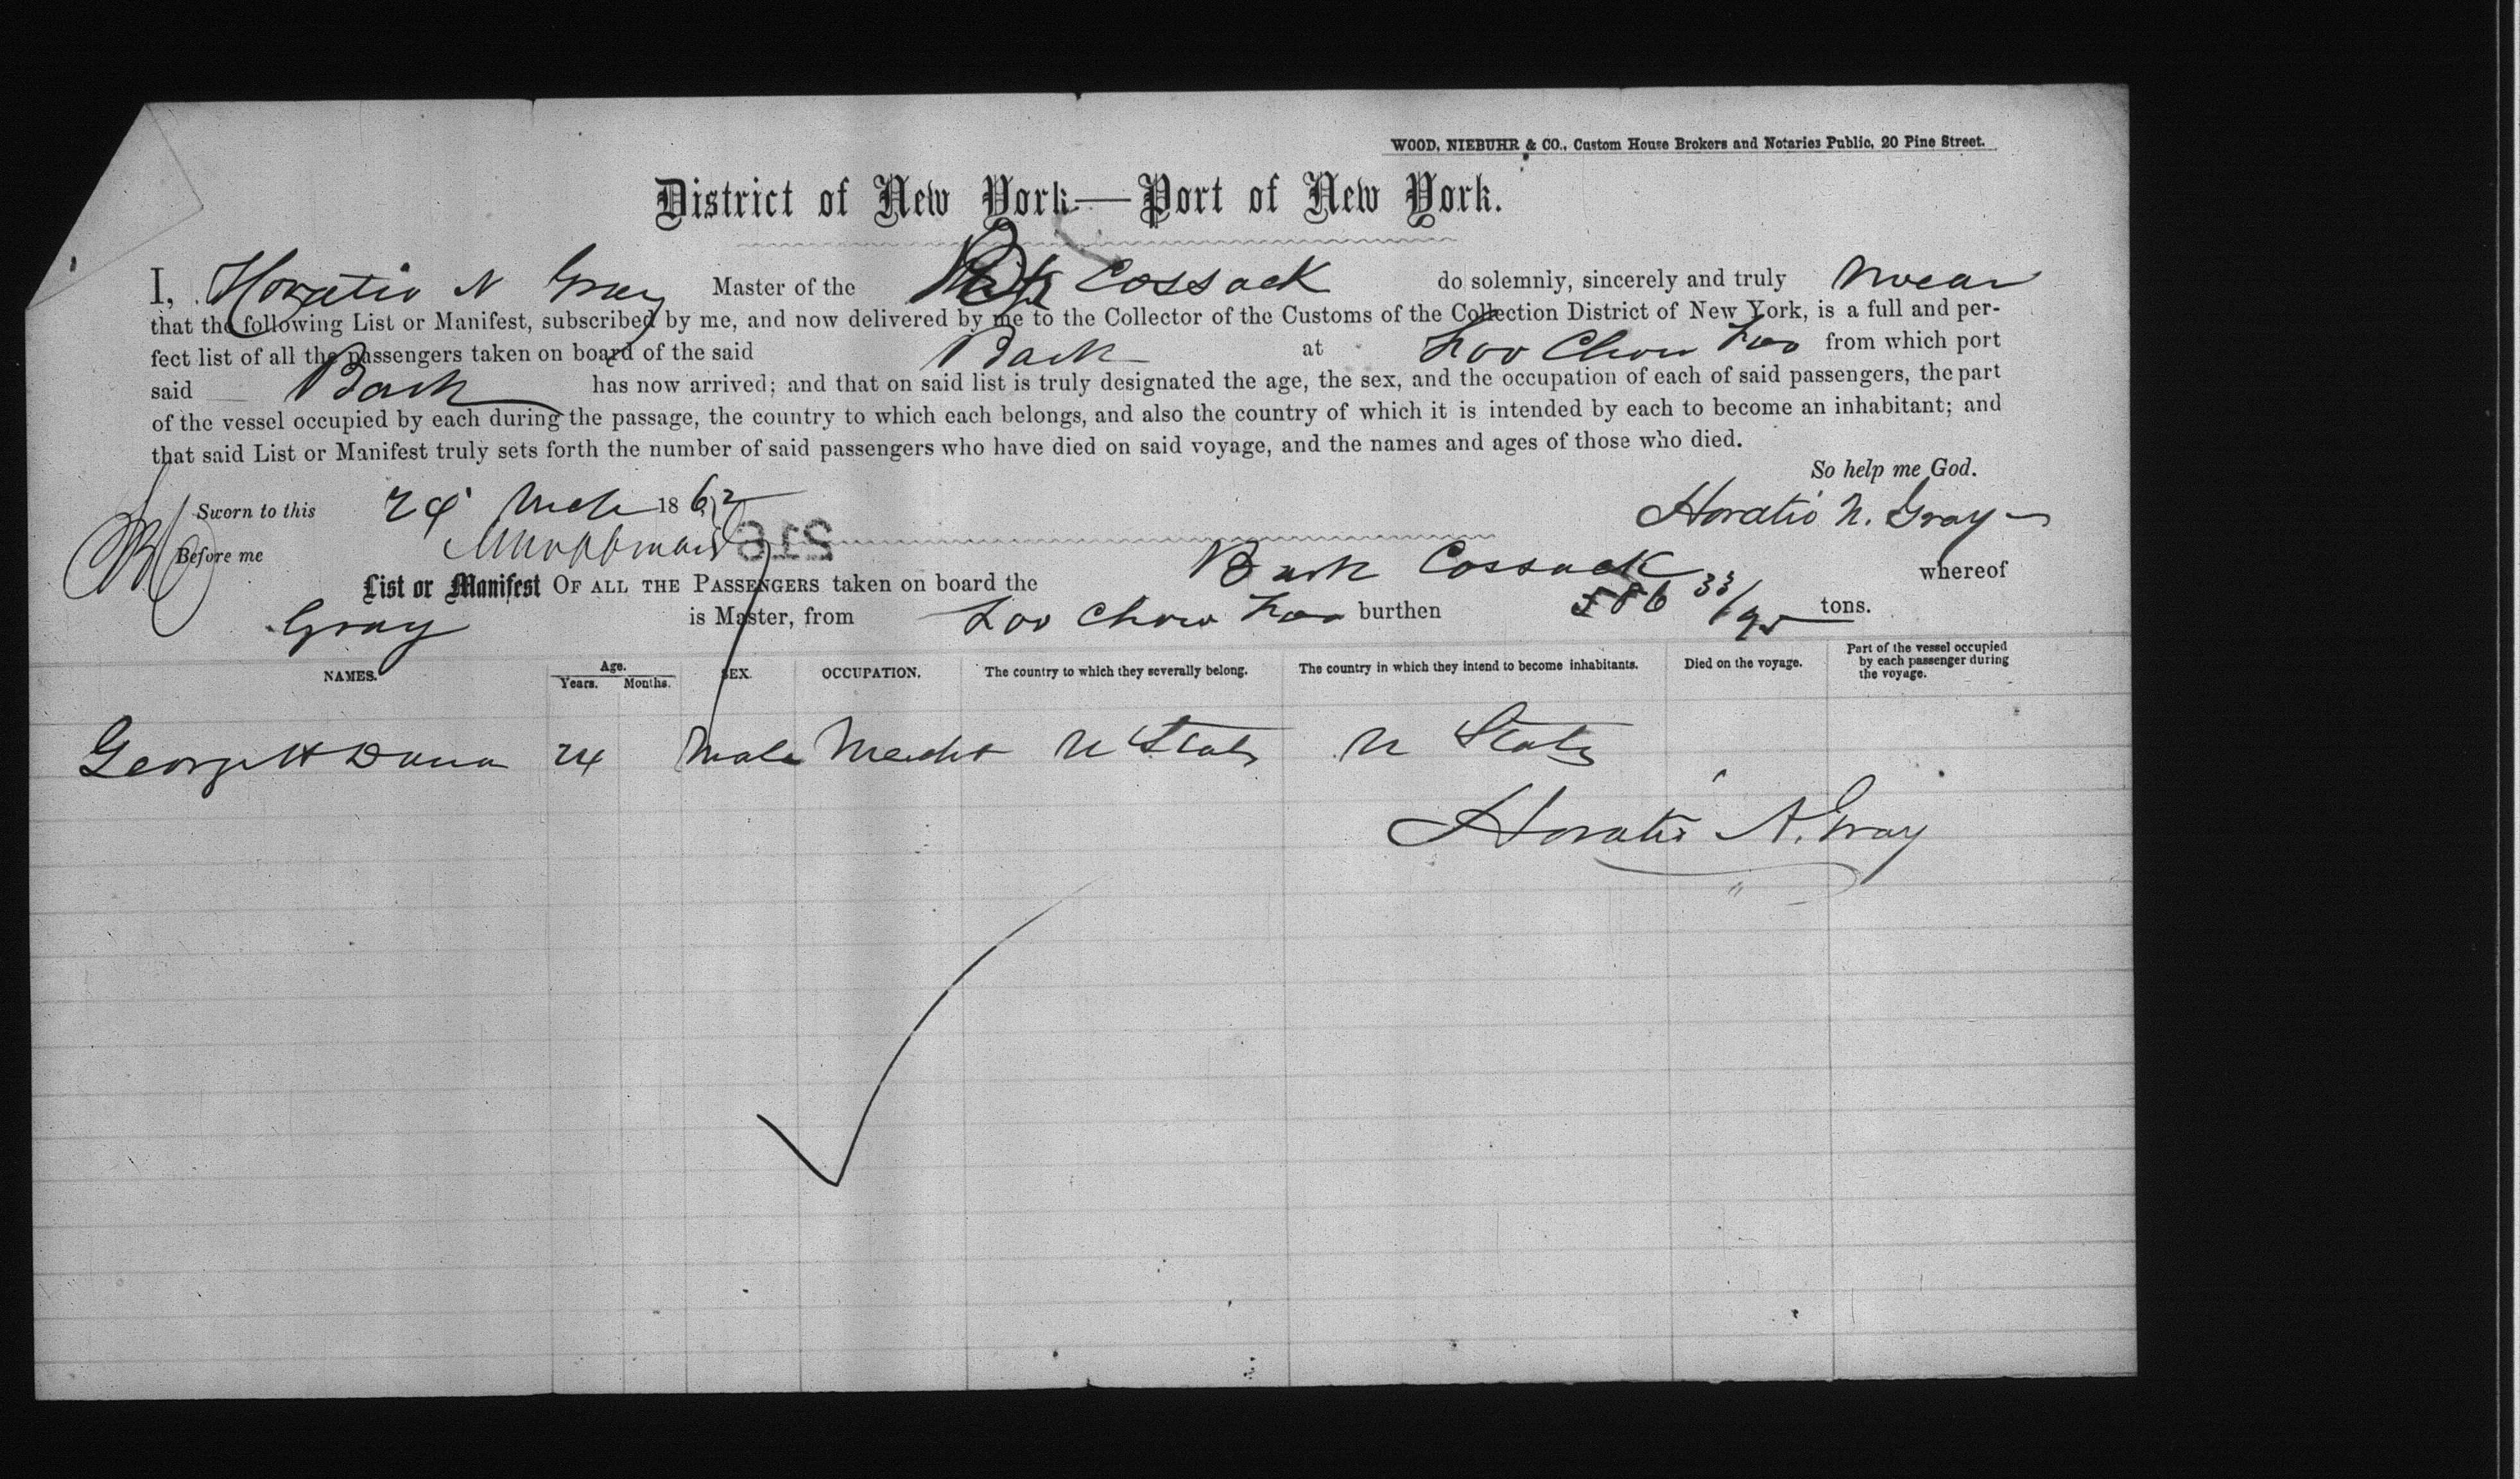 WOOD, NIEBUHR & CO., Custom House Brokers and Notaries Public, 20 Pine Street.
District of New York—Port of New York.
I, Horatio N Gray Master of the Bark Cossack do solemnly, sincerely and truly swear
that the following List or Manifest, subscribed by me, and now delivered by me to the Collector of the Customs of the Collection District of New York, is a full and per-
fect list of all the passengers taken on board of the said Bark at Foo Chow Foo from which port
said Bark has now arrived; and that on said list is truly designated the age, the sex, and the occupation of each of said passengers, the part
of the vessel occupied by each during the passage, the country to which each belongs, and also the country of which it is intended by each to become an inhabitant; and
that said List or Manifest truly sets forth the number of said passengers who have died on said voyage, and the names and ages of those who died.
So help me God.
Sworn to this 24 Mch 1862 Horatio N. Gray
Before me
216
List or Manifest OF ALL THE PASSENGERS taken on board the Bark Cossack whereof
Gray is Master, from Foo Chow Foo burthen 586 33/95 tons.
NAMES. Age. Years. Months. SEX. OCCUPATION. The country to which they severally belong. The country in which they intend to become inhabitants. Died on the voyage. Part of the vessel occupied by each passenger during the voyage.
George H Dana 24 Male Mercht U States U States
Horatio N. Gray